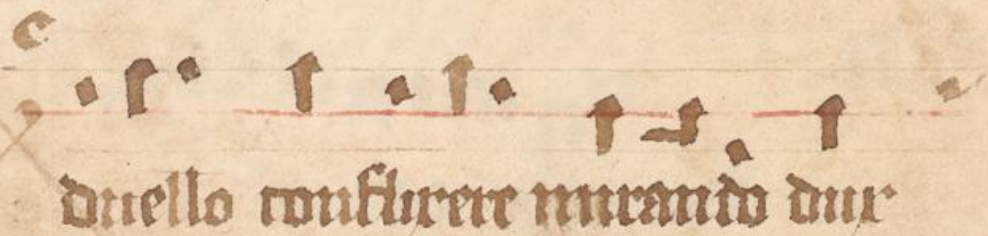 duello conflixere mirando dux